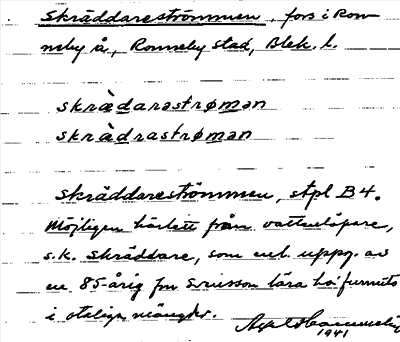 Skräddareströmmen, fors i Ron-
neby å, Ronneby stad, Blek. l.
skrädarastrømən
skrädrastrømən
Skräddareströmmen, stpl B4.
Möjligen härlett från vattenlöpare,
s.k. skräddare, som enl. uppg. av
en 85-årig fru Svensson lära ha funnits
i otaliga mängder.
1941